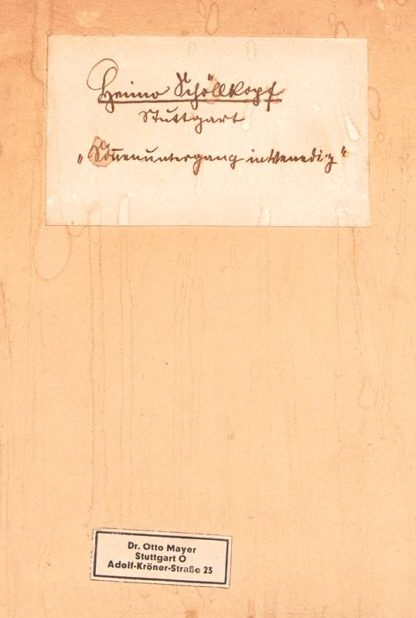 Heino Schöllkopf
Stuttgart
„Sonnenuntergang in Venedig“
Dr. Otto Mayer
Stuttgart O
Adolf-Kröner-Straße 23